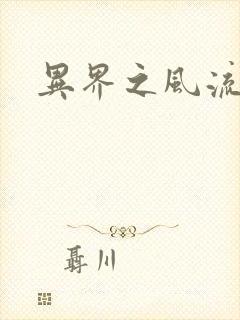 異界之風流
聶川